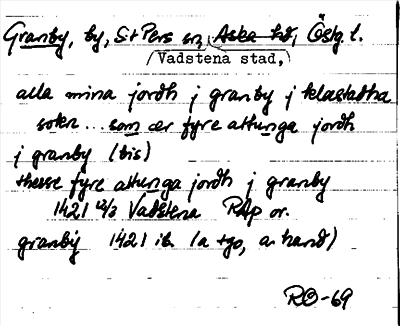 Granby, by, S:t Pers sn, Aska hd, Östg l.
Vadstena stad,
alla mina jordh j granby j klastadha
sokn... som ær fyre attunga jordh
j granby (bis)
thesse fyre attunga jordh j granby
1421 12/3 Vadstena RAp or.
granby 1421 ib. (a tgo, a. hand)
RO-69